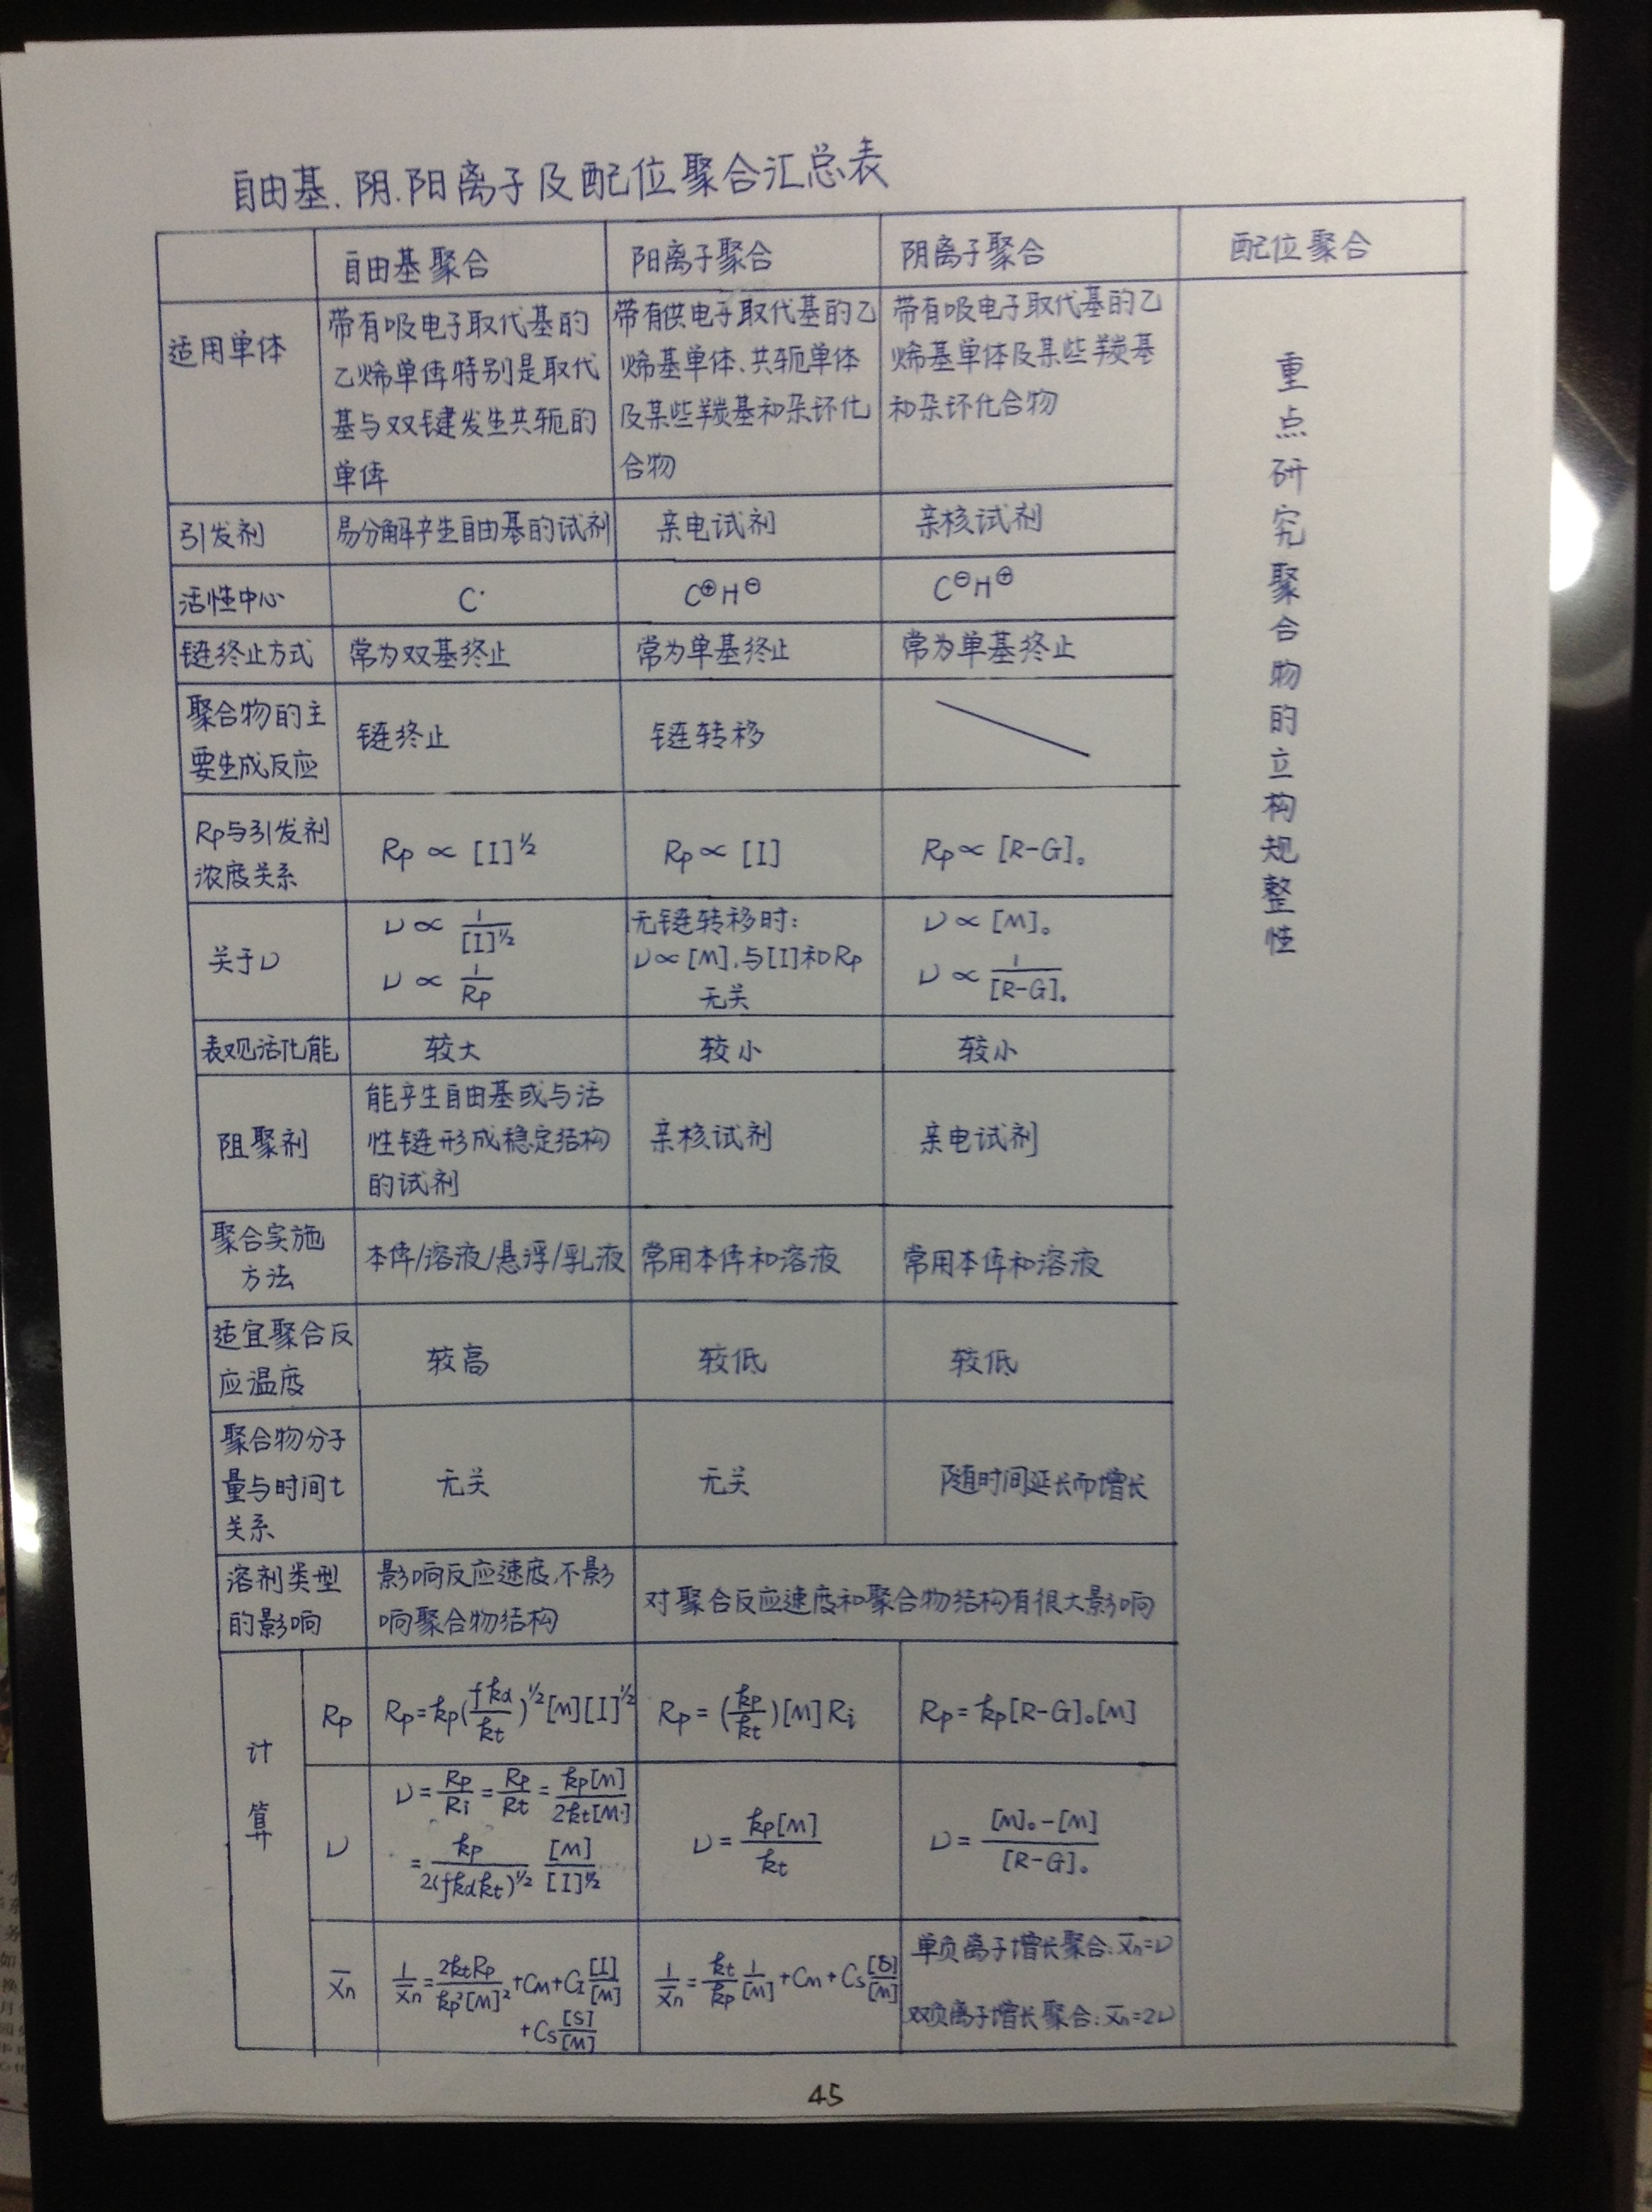 自由基.阴.阳离子及配位聚合汇总表
自由基聚合 阳离子聚合 阴离子聚合 配位聚合
适用单体
带有吸电子取代基的
乙烯单体特别是取代
基与双键发生共轭的
单体
带有供电子取代基的乙
烯基单体、共轭单体
及某些羰基和杂环化
合物
带有吸电子取代基的乙
烯基单体及某些羰基
和杂环化合物
重点研究聚合物的立构规整性
引发剂 易分解产生自由基的试剂 亲电试剂 亲核试剂
活性中心 C· C⊕H⊖ C⊖H⊕
链终止方式 常为双基终止 常为单基终止 常为单基终止
聚合物的主
要生成反应
链终止 链转移
Rp与引发剂
浓度关系
Rp ∝ [I]^½ Rp ∝ [I] Rp ∝ [R-G]。
关于ν
ν ∝ 1/[I]^½
ν ∝ 1/Rp
无链转移时:
ν∝[M],与[I]和Rp
无关
ν ∝ [M]。
ν ∝ 1/[R-G]。
表观活化能 较大 较小 较小
阻聚剂
能产生自由基或与活
性链形成稳定结构
的试剂
亲核试剂 亲电试剂
聚合实施
方法
本体/溶液/悬浮/乳液 常用本体和溶液 常用本体和溶液
适宜聚合反
应温度
较高 较低 较低
聚合物分子
量与时间t
关系
无关 无关 随时间延长而增长
溶剂类型
的影响
影响反应速度,不影
响聚合物结构
对聚合反应速度和聚合物结构有很大影响
计算
Rp Rp=kp(fkd/kt)^½[M][I]^½ Rp=(kp/kt)[M]Ri Rp=kp[R-G]。[M]
ν
ν=Rp/Ri=Rp/Rt=kp[M]/2kt[M·]
=kp/2(fkdkt)^½ [M]/[I]^½
ν=kp[M]/kt
ν=[M]。-[M]/[R-G]。
X̄n
1/X̄n=2ktRp/kp²[M]²+CM+CI[I]/[M]
+Cs[S]/[M]
1/X̄n=kt/kp 1/[M]+CM+Cs[S]/[M]
单负离子增长聚合:X̄n=ν
双负离子增长聚合:X̄n=2ν
45